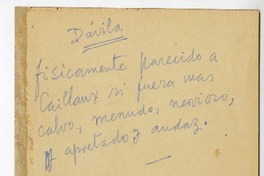 Dávila
físicamente parecido a
Caillaux si fuera mas
calvo, menudo, nervioso,
apretado y audaz.